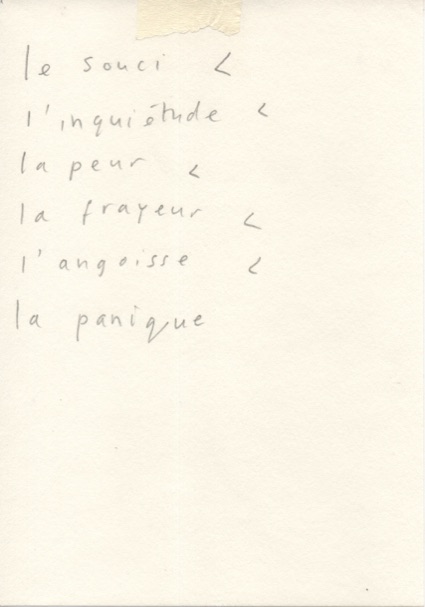 le souci <
l'inquiétude <
la peur <
la frayeur <
l'angoisse <
la panique